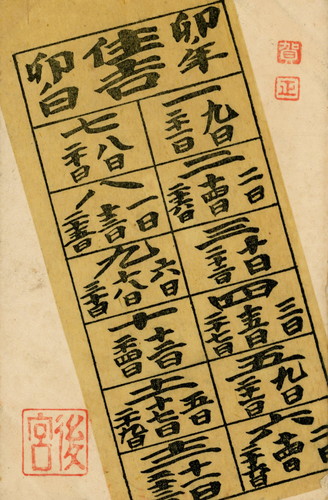 卯年
住吉
卯日
一 九日
二十一日
二 二日
十四日
二十六日
三 十日
二十二日
四 三日
十五日
二十七日
五 九日
二十一日
六 二日
十四日
七 八日
二十日
八 一日
十三日
二十五日
九 六日
十八日
三十日
十 十二日
二十四日
十一 五日
十七日
二十九日
十二 十一
賀正
後宮